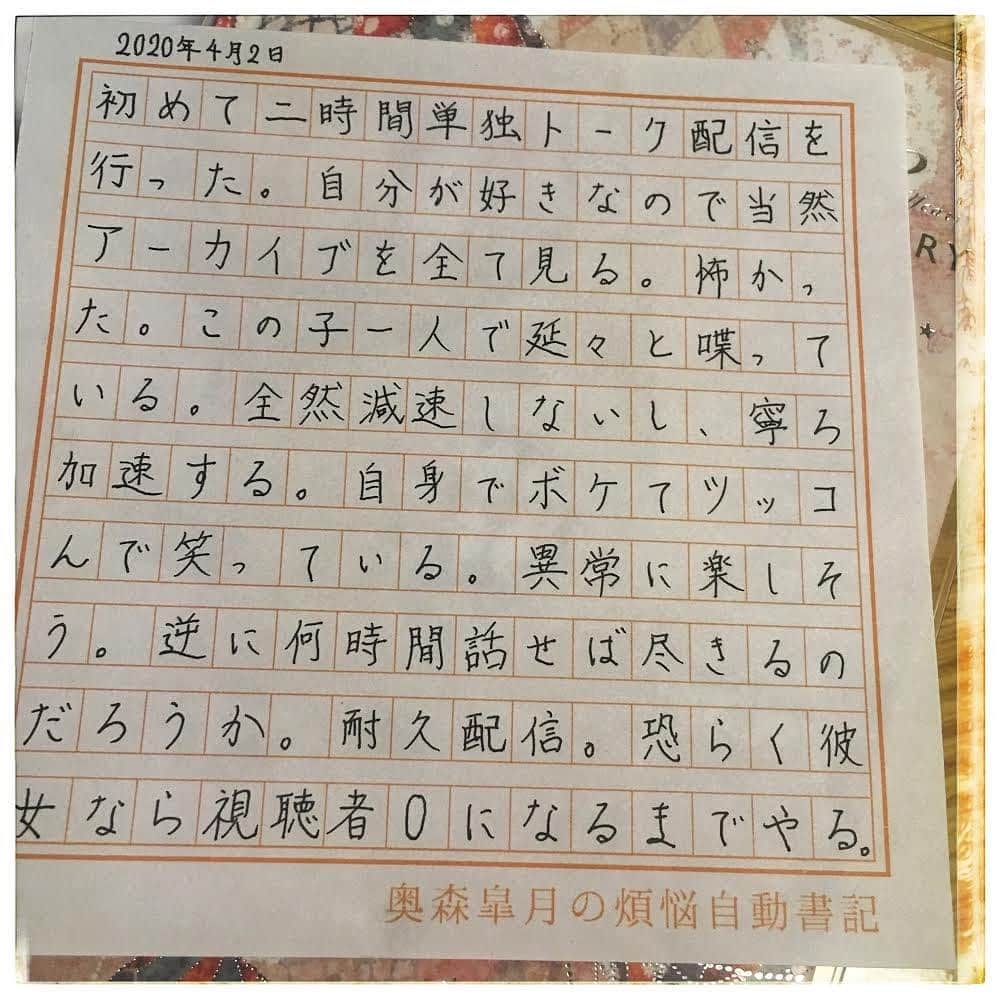 2020年4月2日
初めて二時間単独トーク配信を
行った。自分が好きなので当然
アーカイブを全て見る。怖かっ
た。この子一人で延々と喋って
いる。全然減速しないし、寧ろ
加速する。自身でボケてツッコ
んで笑っている。異常に楽しそ
う。逆に何時間話せば尽きるの
だろうか。耐久配信。恐らく彼
女なら視聴者0になるまでやる。
奥森皐月の煩悩自動書記